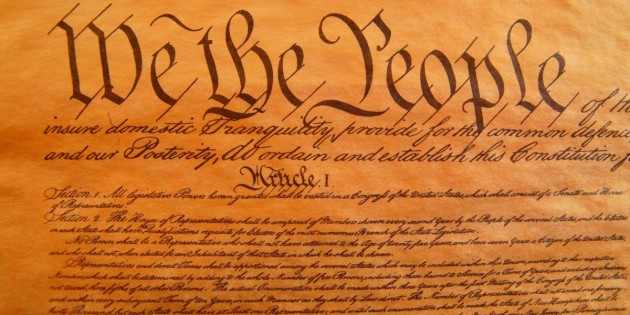 We the People of the
insure domestic Tranquility, provide for the common defence
and our Posterity, do ordain and establish this Constitution f
Article. I.
Section. 1. All legislative Powers herein granted shall be vested in a Congress of the United States, which shall consist of a Senate and House
of Representatives.
Section. 2. The House of Representatives shall be composed of Members chosen every second Year by the People of the several States, and the Electors
in each State shall have Qualifications requisite for Electors of the most numerous Branch of the State Legislature.
No Person shall be a Representative who shall not have attained to the Age of twenty five Years, and been seven Years a Citizen of the United States,
and who shall not, when elected, be an Inhabitant of that State in which he shall be chosen.
Representatives and direct Taxes shall be apportioned among the several States which may be included within this Union, according to their respective
Numbers, which shall be determined by adding to the whole Number of free Persons, including those bound to Service for a Term of Years, and excluding Indians
not taxed, three fifths of all other Persons. The actual Enumeration shall be made within three Years after the first Meeting of the Congress of the United States,
and within every subsequent Term of ten Years, in such Manner as they shall by Law direct. The Number of Representatives shall not exceed one for every
thirty Thousand, but each State shall have at Least one Representative; and until such enumeration shall be made, the State of New Hampshire shall be